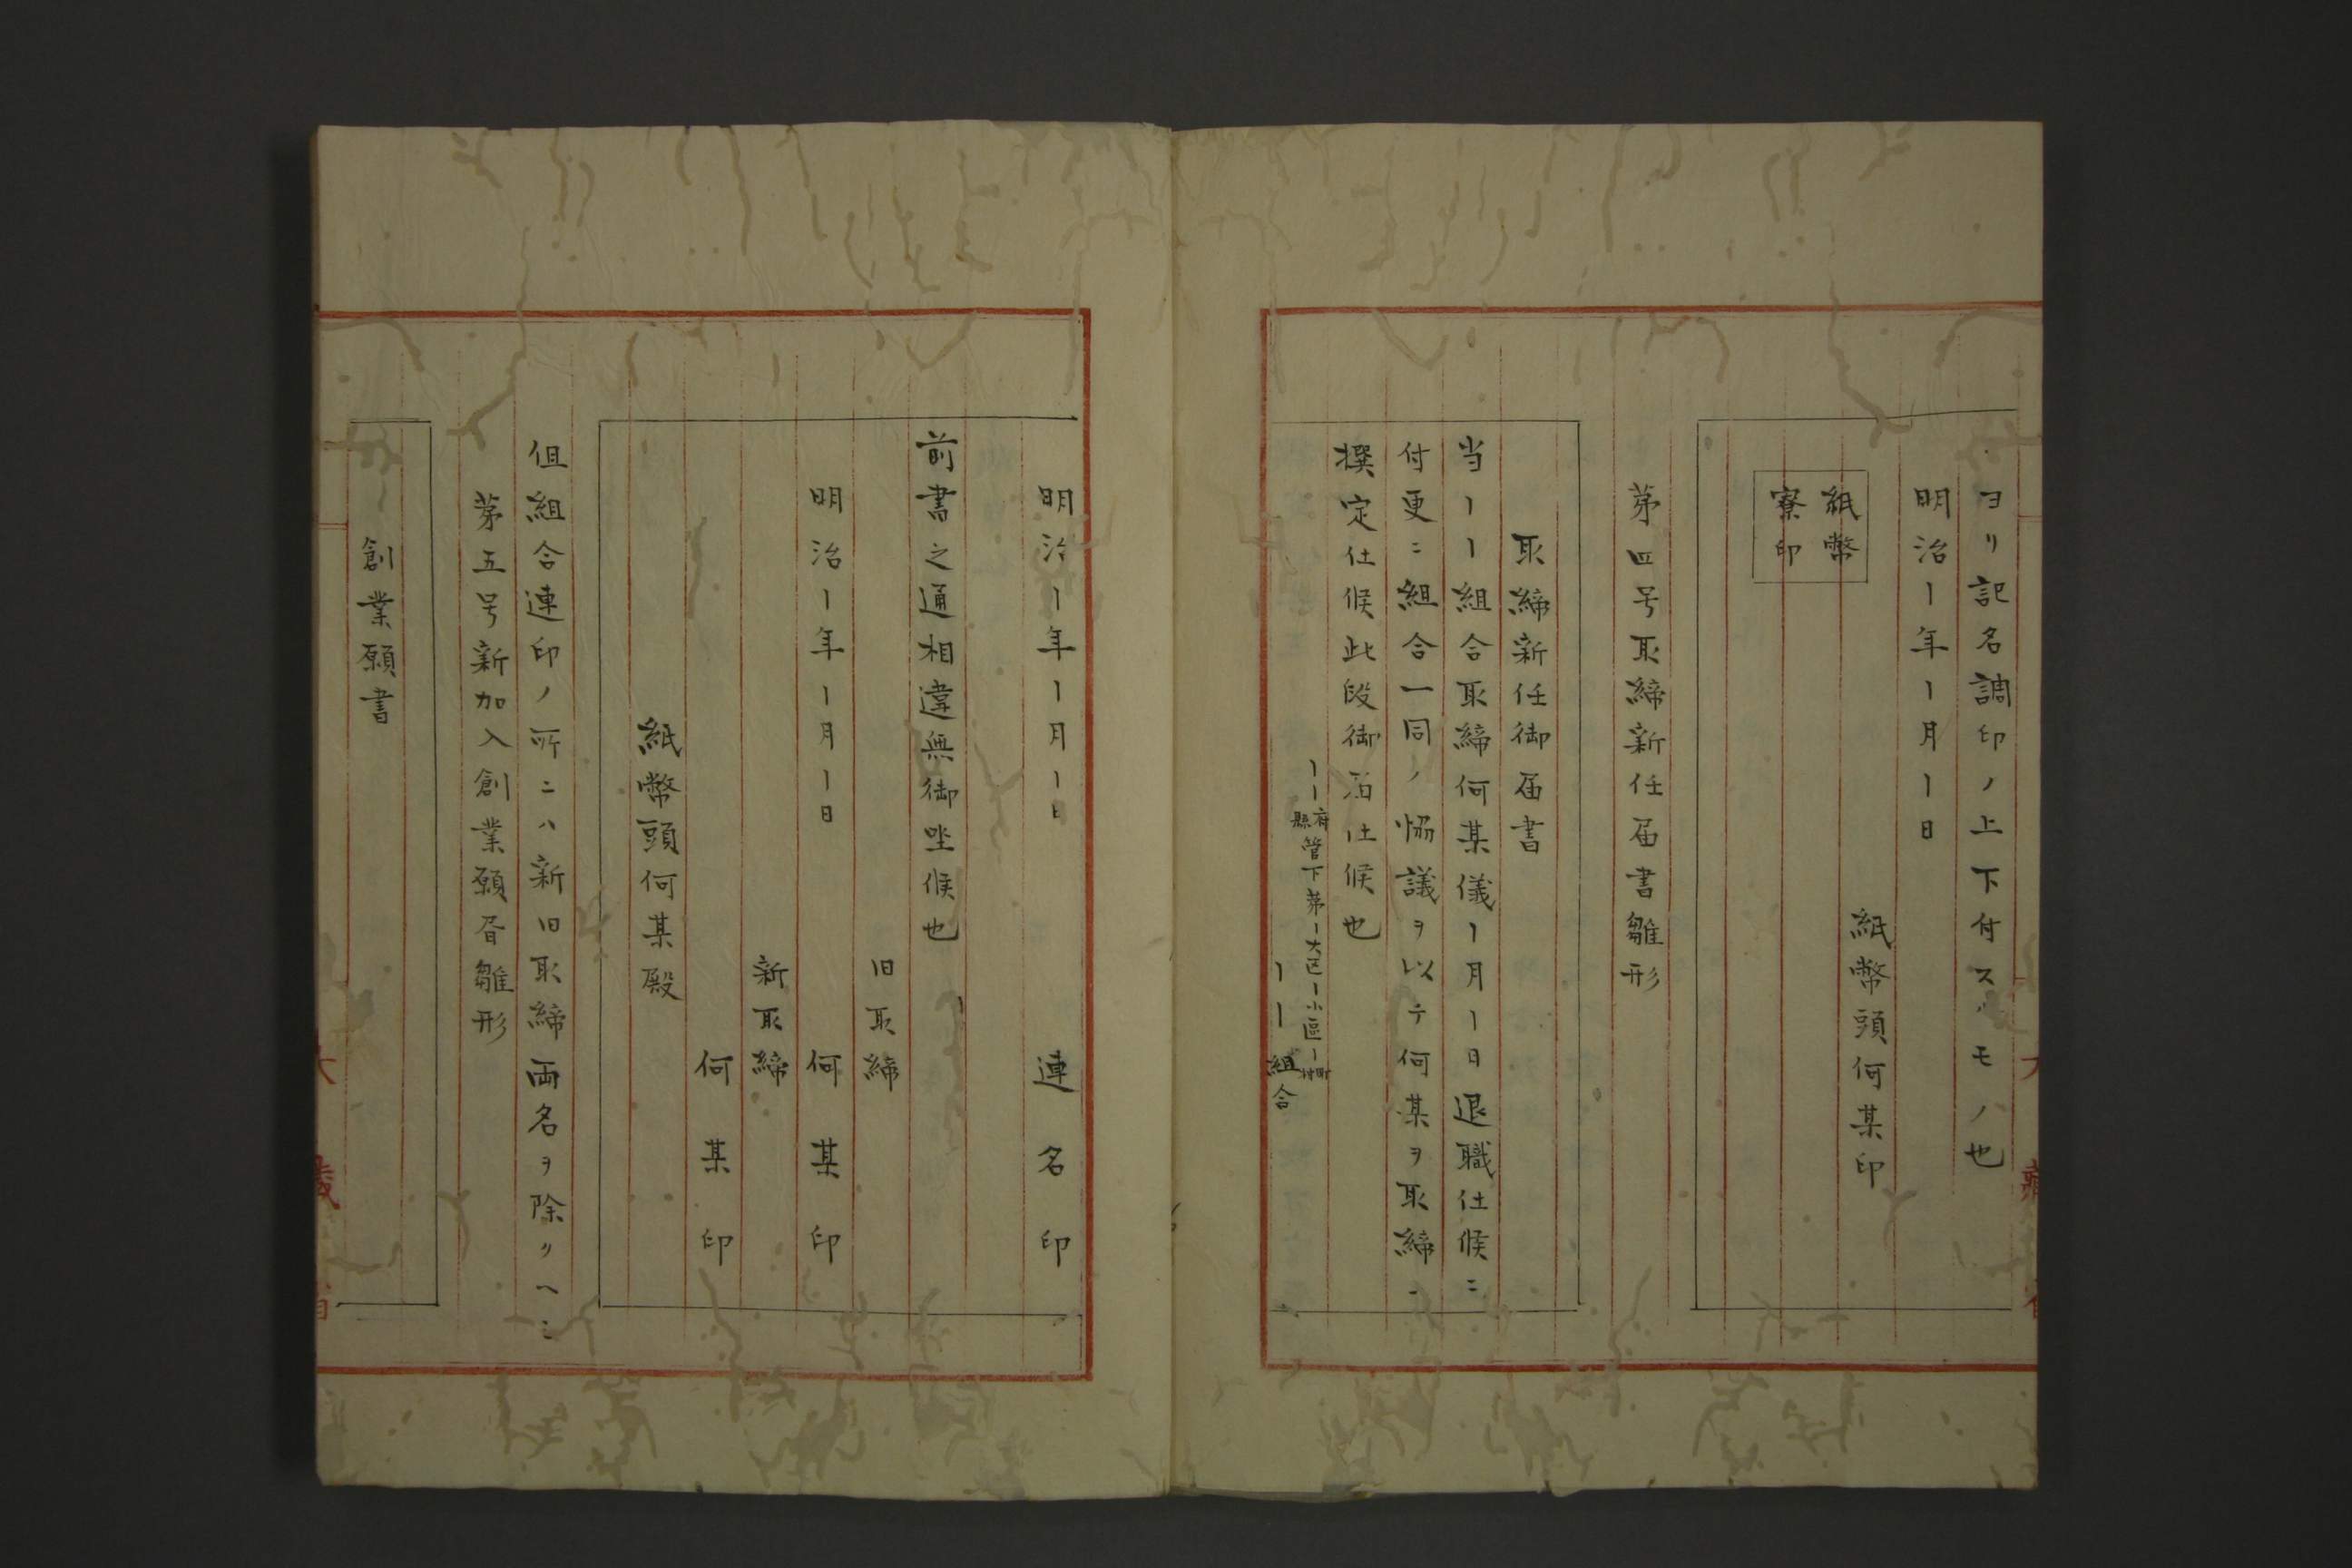 ヨリ記名調印ノ上下付スルモノ也
明治ー年ー月ー日
紙幣頭何某印
紙幣
寮印
第四号取締新任届書雛形
取締新任御届書
当ーー組合取締何某儀ー月ー日退職仕候ニ
付更ニ組合一同ノ協議ヲ以テ何某ヲ取締ニ
撰定仕候此段御届仕候也
ーー府縣管下第ー大区ー小區ー町村
ーー組合
明治ー年ー月ー日 連名印
前書之通相違無御坐候也
旧取締
明治ー年ー月ー日 何某印
新取締
何某印
紙幣頭何某殿
但組合連印ノ所ニハ新旧取締両名ヲ除クヘシ
第五号新加入創業願書雛形
創業願書
大藏省
大藏省